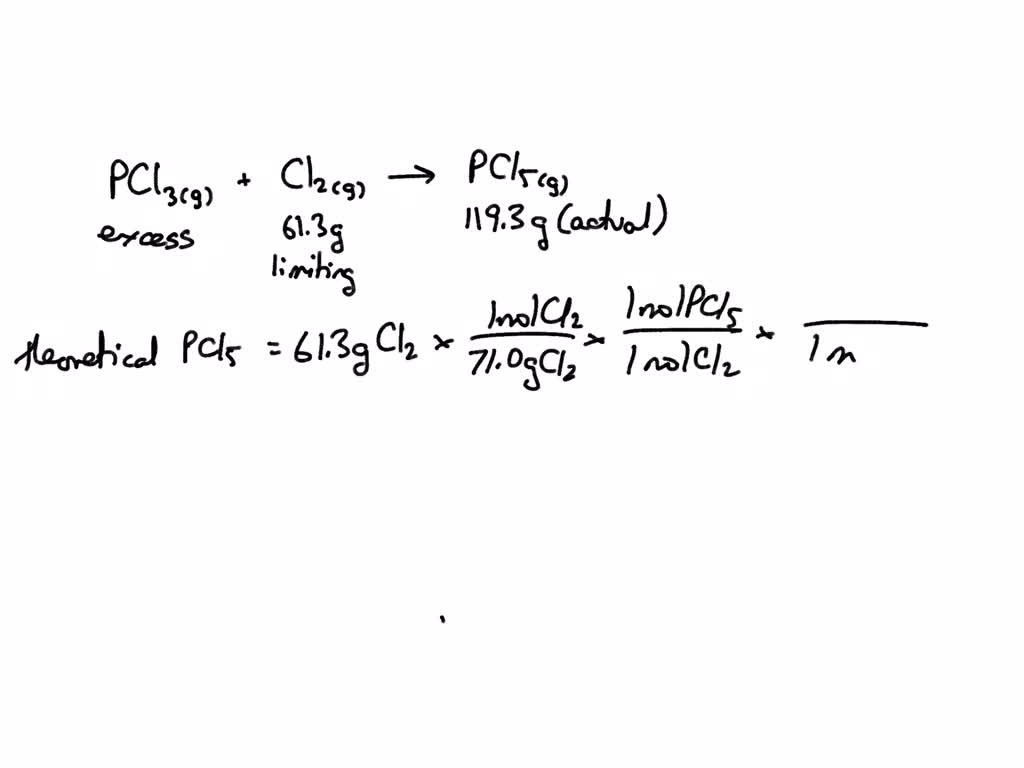 PCl3(g) + Cl2(g) → PCl5(g)
excess 61.3g 119.3g (actual)
limiting
theoretical PCl5 = 61.3g Cl2 × 1 mol Cl2 / 71.0g Cl2 × 1 mol PCl5 / 1 mol Cl2 × / 1 m